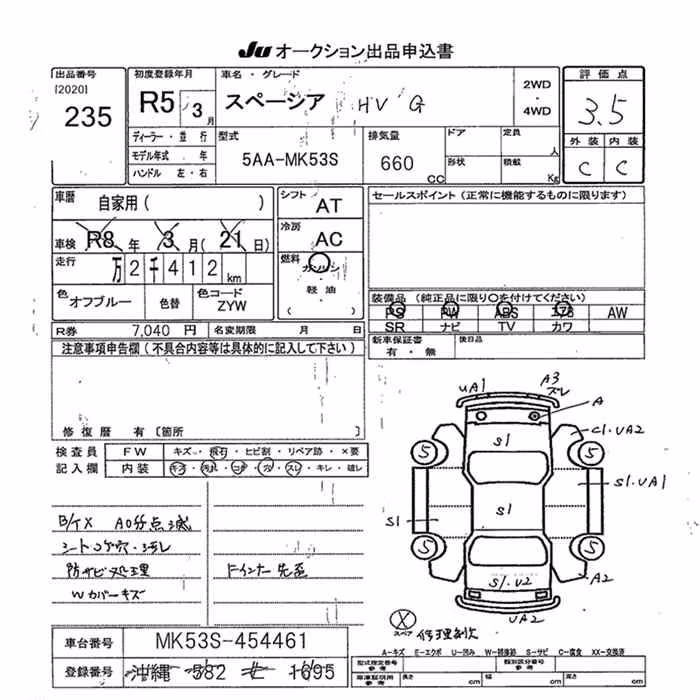 Ju オークション出品申込書
出品番号
[2020]
235
初度登録年月
R5 3月
車名・グレード
スペーシア HV G
2WD
・
4WD
評価点
3.5
外装 内装
C C
ディーラー・並行
モデル年式 年
ハンドル 左・右
型式
5AA-MK53S
排気量
660 CC
ドア
形状
定員 人
積載 Kg
車歴 自家用( )
車検 R8年 3月(21日)
走行 万2千412km
色 オフブルー
色替
色コード ZYW
シフト AT
冷房 AC
燃料 ガソリン
・
軽油
( )
セールスポイント(正常に機能するものに限ります)
装備品 (純正品に限り○を付けてください)
PS PW ABS エアB AW
SR ナビ TV カワ
R券 7,040 円 名変期限 月 日
新車保証書
有・無
後日品
注意事項申告欄(不具合内容等は具体的に記入して下さい)
修復歴 有〔箇所
検査員
記入欄
FW キズ・飛石・ヒビ割・リペア跡・×要
内装 キズ・汚れ・コゲ・穴・スレ・キレ・破レ
シートコゲ穴・汚レ
防サビ処理
Wカバーキズ
ドインナー先歪
uA1
A3
スレ
A
S1
C1.UA2
5
5
S1.UA1
S1
S1
5
5
S1.U2
A2
UA2
X
スペア
修理刻次
A-キズ E-エクボ U-凹み W-補修跡 S-サビ C-腐食 XX-交換済
車台番号 MK53S-454461
登録番号 沖縄 582 1695
型式指定番号
参考
類別区分番号
参考
車庫証明用
参考
長さ cm 幅 cm 高さ cm